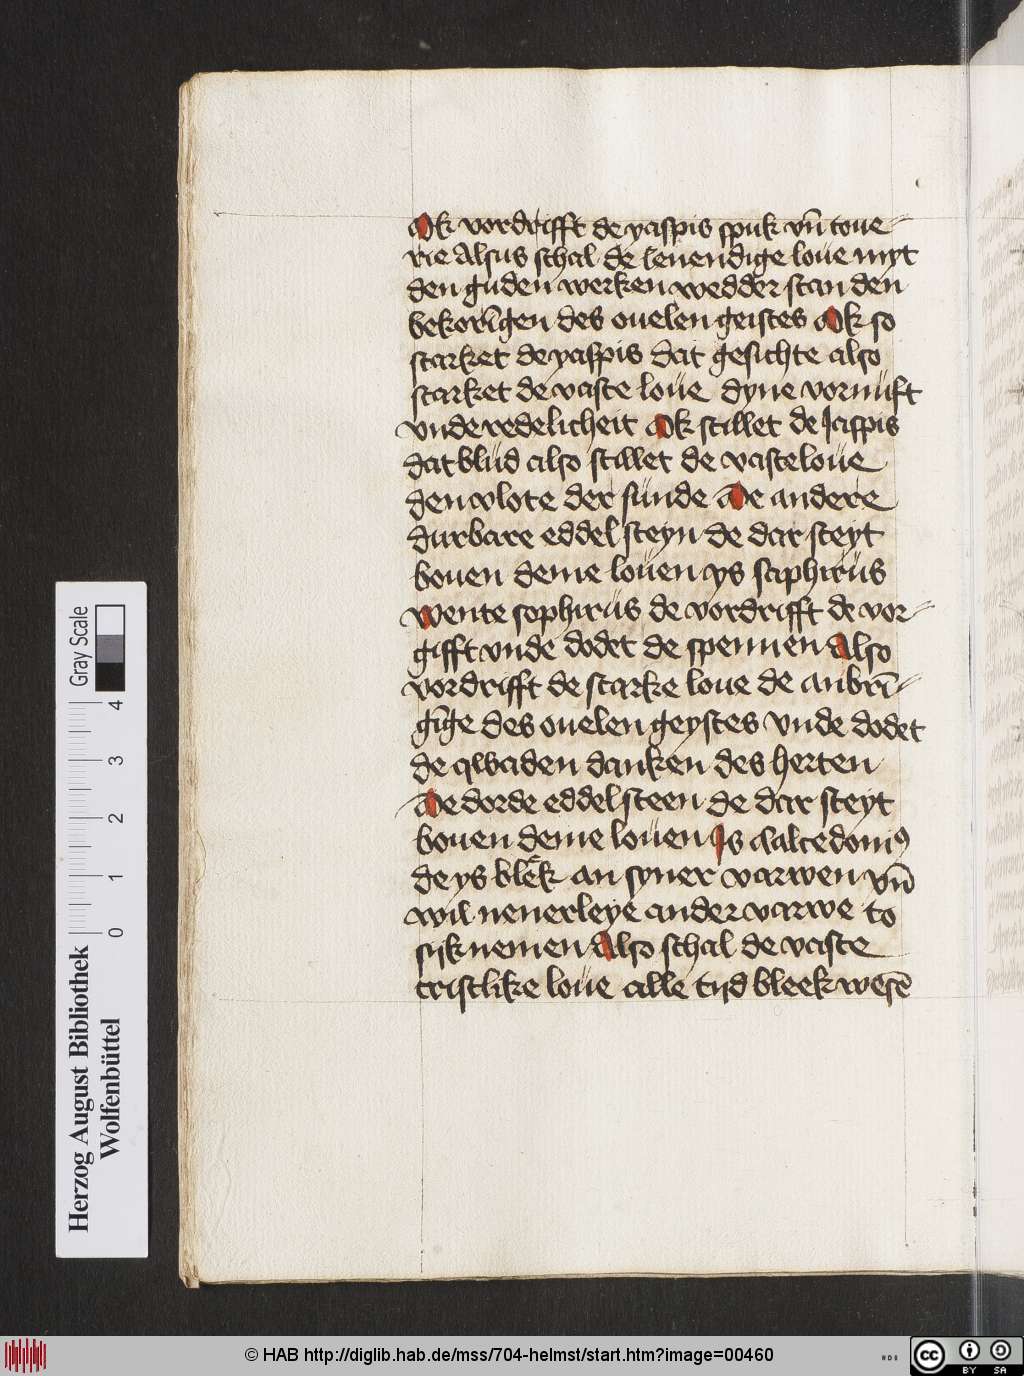 Ok vordrifft de yaspis spuk vn̄ toue-
rie Alsus schal de leuendige loue myt
den guden werken wedder stan den
bekorīgen des ouelen geistes Ok so
starket de yaspis dat gesichte also
starket de vaste loüe dyne vornüft
vnde redelicheit Ok stillet de Jaspis
dat blüd also stillet de vaste loüe
den vlote der sünde De andere
durbare eddel steyn de dar steyt
bouen deme loüen ys saphirüs
wente sophirüs de vordrifft de vor-
gifft vnde dodet de spennen Also
vordrifft de starke loue de anbrī-
gīge des ouelen geystes vnde dodet
de qwaden danken des herten
De dorde eddelsteen de dar steyt
bouen deme loüen Is calcedoniꝰ
de ys blek an syner varwen vn̄
wil nenerleye ander varwe to
sijk nemen Also schal de vaste
cristlike loüe alle tijd bleek wesē
Herzog August Bibliothek
Wolfenbüttel
Gray Scale
0 1 2 3 4
© HAB http://diglib.hab.de/mss/704-helmst/start.htm?image=00460
HAB
cc BY SA